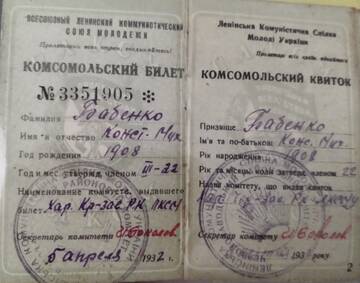 ВСЕСОЮЗНЫЙ ЛЕНИНСКИЙ КОММУНИСТИЧЕСКИЙ
СОЮЗ МОЛОДЕЖИ
Пролетарии всех стран, соединяйтесь!
КОМСОМОЛЬСКИЙ БИЛЕТ
№3351905
Фамилия Бабенко
Имя и отчество Конст. Мих
Год рождения 1908
Год и мес. вступл. членом III-22
Наименование комитета, выдавшего
билет Хар. Кр-Зас. РК ЛКСМУ
Секретарь комитета
5 апреля 1932 г.
Ленінська Комуністична Спілка
Молоді України
Пролетарі всіх країн, єднайтеся!
КОМСОМОЛЬСЬКИЙ КВИТОК
Прізвище Бабенко
Ім'я та по-батькові Конс. Мих
Рік народження 1908
Рік та місяць коли затверд. членом 22
Назва комітету, що видав квиток
Секретар комітету
193 року.
2